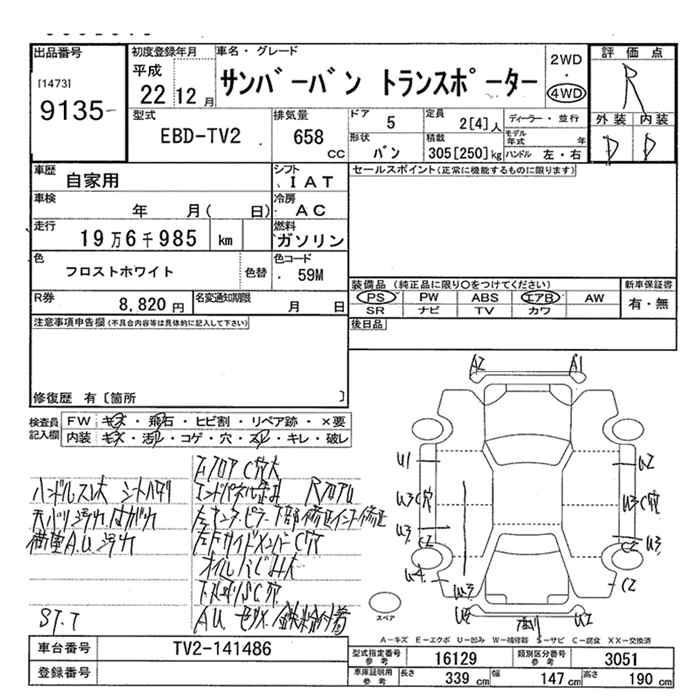 出品番号
[1473]
9135
初度登録年月
平成
22 12月
車名・グレード
サンバーバン トランスポーター
2WD
・
4WD
評価点
R
外装 内装
D D
型式
EBD-TV2
排気量
658
CC
ドア
5
定員
2[4]人
ディーラー・並行
モデル年式 年
形状
バン
積載
305[250]kg
ハンドル 左・右
車歴
自家用
シフト
IAT
セールスポイント(正常に機能するものに限ります)
車検
年 月( 日)
冷房
AC
走行
19万6千985 km
燃料
ガソリン
色
フロストホワイト
色替
色コード
59M
装備品 (純正品に限り○をつけてください)
新車保証書
PS PW ABS エアB AW
有・無
SR ナビ TV カワ
R券
8,820円
名変通知期限
月 日
後日品
注意事項申告欄(不具合内容等は具体的に記入して下さい)
修復歴 有[箇所 ]
検査員
記入欄
FW キズ・飛石・ヒビ割・リペア跡・×要
内装 キズ・汚レ・コゲ・穴・スレ・キレ・破レ
A2 A1
U1 U2
U3 C穴 U3 C穴
U3 C2 U3
U4 C2
U3
U2 U2
スペア
ハンドルスレ大
天バリ汚れ はがれ
荷室A.U.汚れ
オイルにじみ大
下廻りS C穴
ST.T
A-キズ E-エクボ U-凹み W-補修跡 S-サビ C-腐食 XX-交換済
車台番号
TV2-141486
登録番号
型式指定番号
参考
16129
類別区分番号
参考
3051
車庫証明用
参考
長さ
339 cm
幅
147 cm
高さ
190 cm